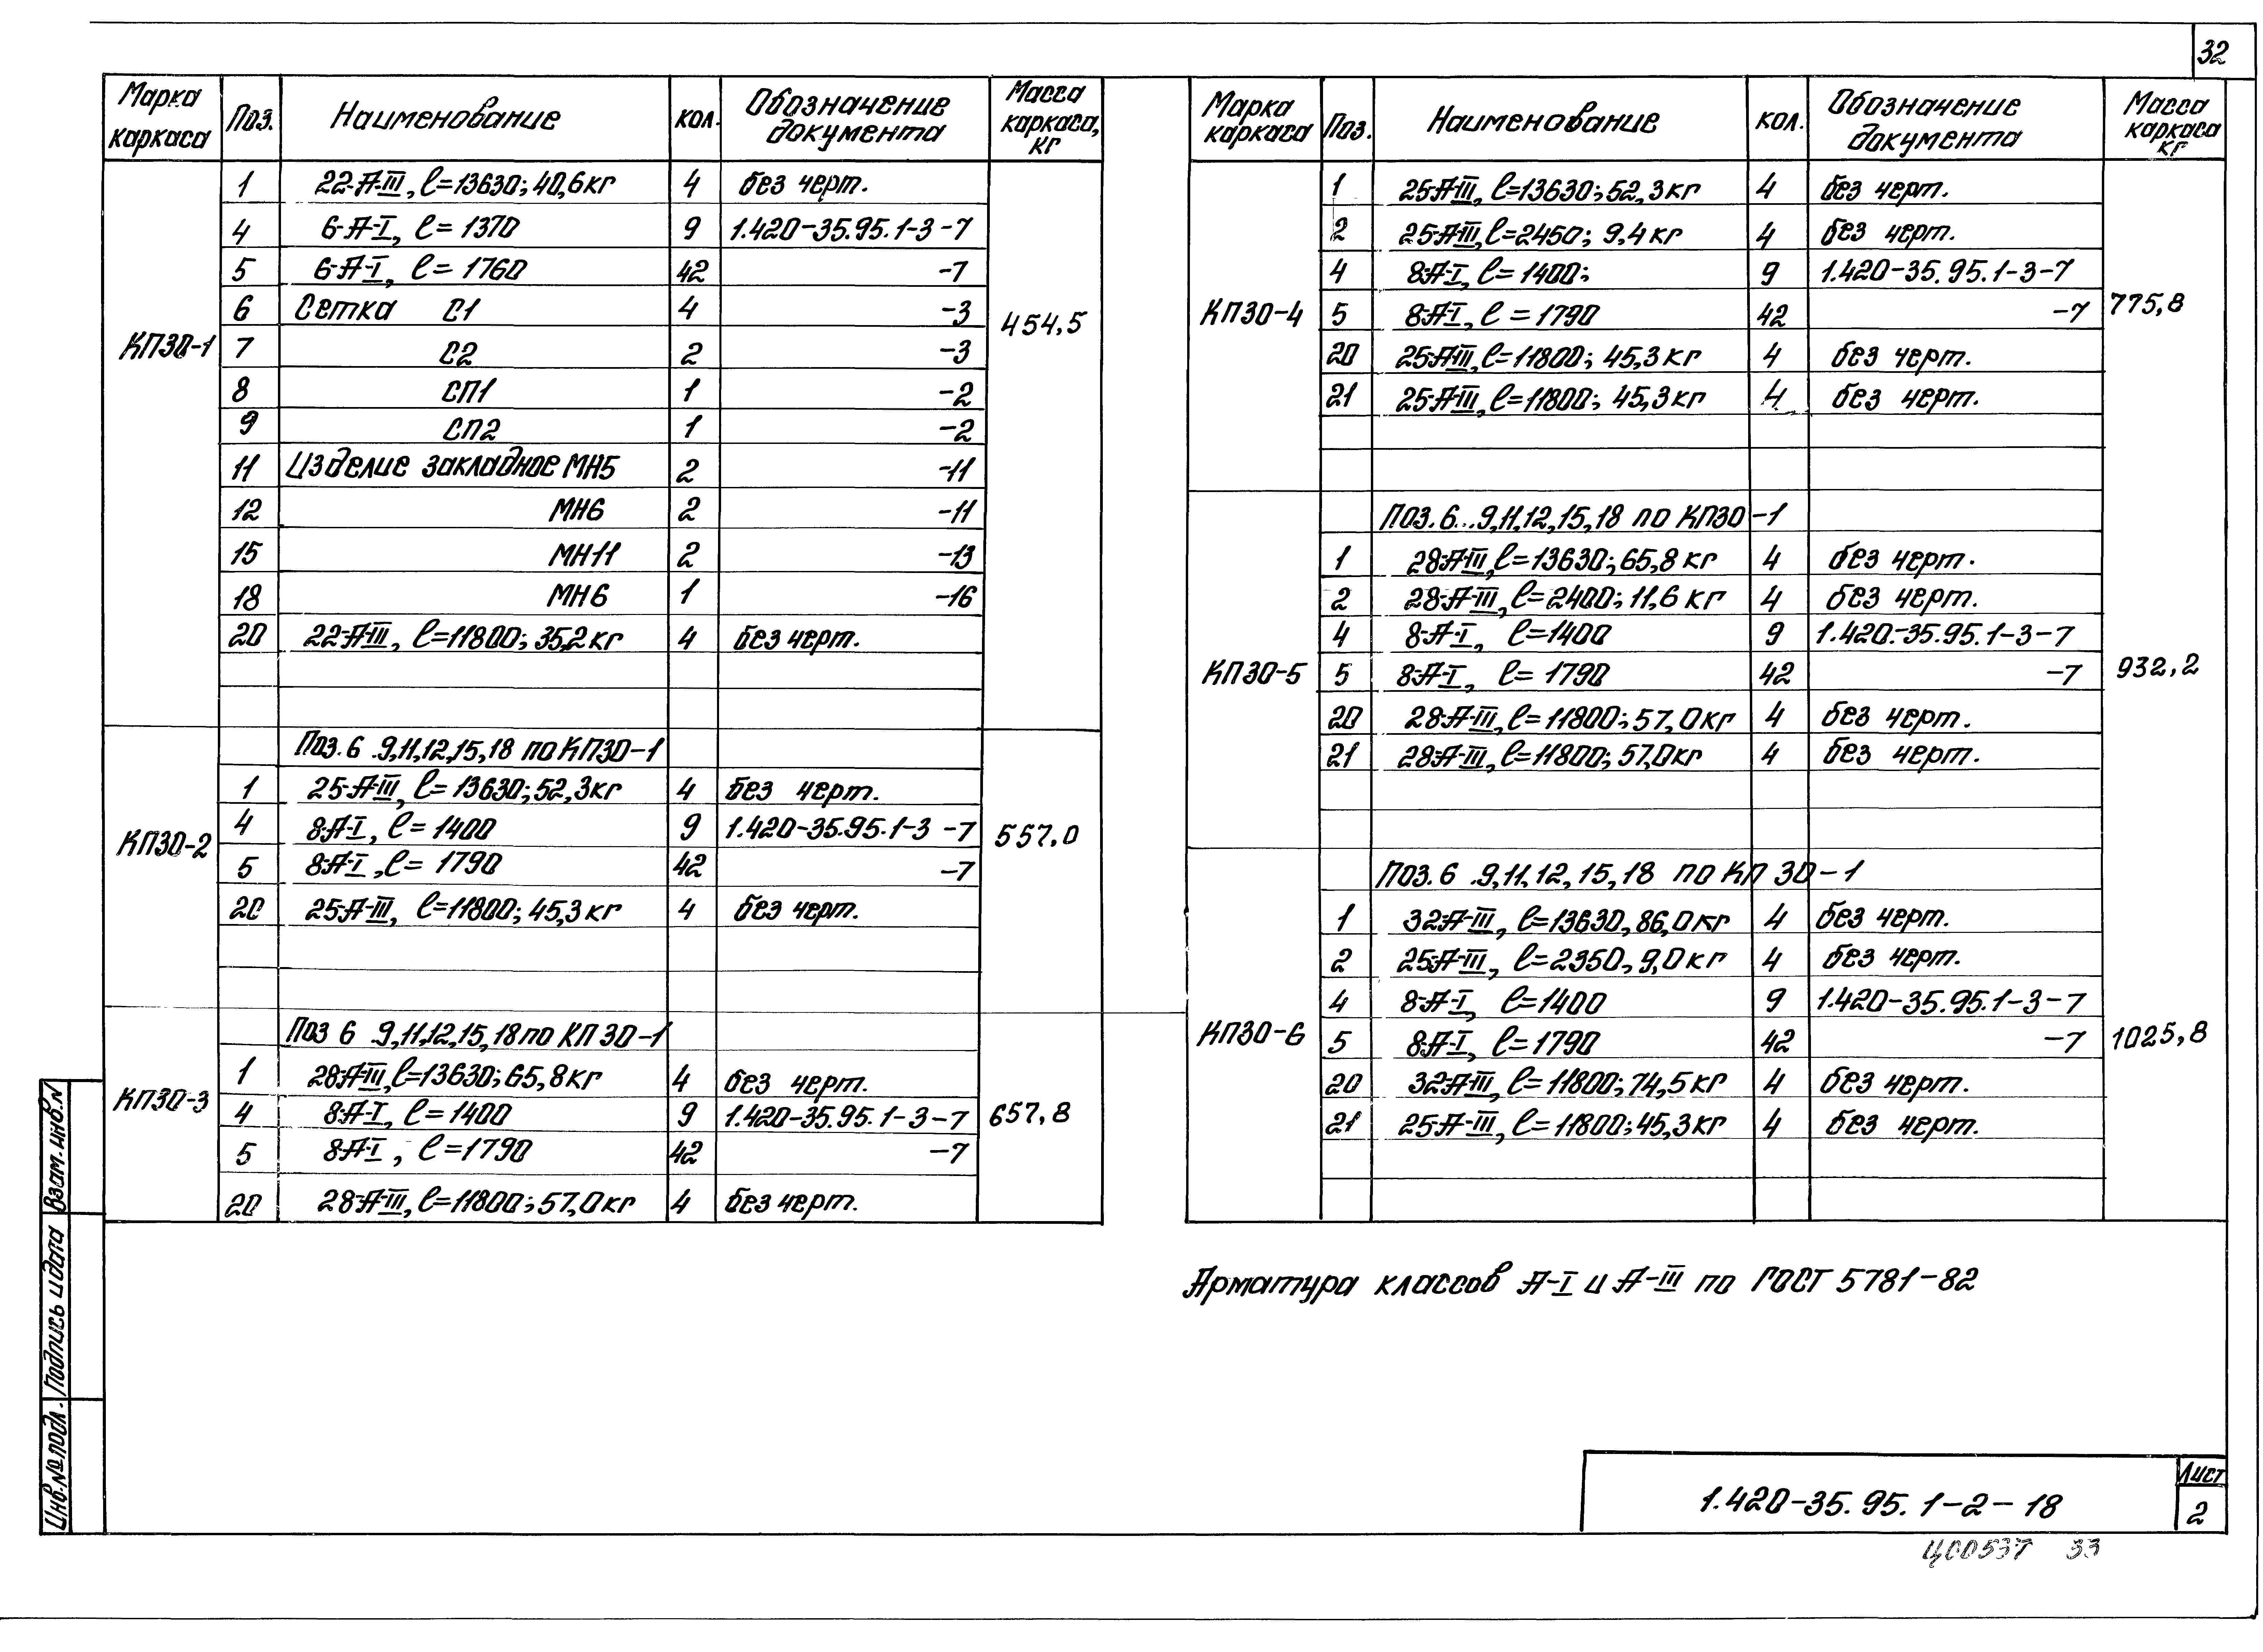 32
Марка каркаса Поз. Наименование кол. Обозначение документа Масса каркаса, кг
КП30-1 454,5
1 22-А-III, ℓ=13630; 40,6кг 4 без черт.
4 6-А-I, ℓ=1370 9 1.420-35.95.1-3-7
5 6-А-I, ℓ=1760 42 -7
6 Сетка С1 4 -3
7 С2 2 -3
8 СП1 1 -2
9 СП2 1 -2
11 Изделие закладное МН5 2 -11
12 МН6 2 -11
15 МН11 2 -13
18 МН6 1 -16
20 22-А-III, ℓ=11800; 35,2кг 4 без черт.
КП30-2 557,0
Поз. 6 .9,11,12,15,18 по КП30-1
1 25-А-III, ℓ=13630; 52,3кг 4 без черт.
4 8-А-I, ℓ=1400 9 1.420-35.95.1-3-7
5 8-А-I, ℓ=1790 42 -7
20 25-А-III, ℓ=11800; 45,3кг 4 без черт.
КП30-3 657,8
Поз 6 .9,11,12,15,18 по КП30-1
1 28-А-III, ℓ=13630; 65,8кг 4 без черт.
4 8-А-I, ℓ=1400 9 1.420-35.95.1-3-7
5 8-А-I, ℓ=1790 42 -7
20 28-А-III, ℓ=11800; 57,0кг 4 без черт.
Марка каркаса Поз. Наименование кол. Обозначение документа Масса каркаса кг
КП30-4 775,8
1 25-А-III, ℓ=13630; 52,3кг 4 без черт.
2 25-А-III, ℓ=2450; 9,4кг 4 без черт.
4 8-А-I, ℓ=1400; 9 1.420-35.95.1-3-7
5 8-А-I, ℓ=1790 42 -7
20 25-А-III, ℓ=11800; 45,3кг 4 без черт.
21 25-А-III, ℓ=11800; 45,3кг 4 без черт.
КП30-5 932,2
Поз. 6...9,11,12,15,18 по КП30-1
1 28-А-III, ℓ=13630; 65,8кг 4 без черт.
2 28-А-III, ℓ=2400; 11,6кг 4 без черт.
4 8-А-I, ℓ=1400 9 1.420-35.95.1-3-7
5 8-А-I, ℓ=1790 42 -7
20 28-А-III, ℓ=11800; 57,0кг 4 без черт.
21 28-А-III, ℓ=11800; 57,0кг 4 без черт.
КП30-6 1025,8
Поз. 6 .9,11,12,15,18 по КП30-1
1 32-А-III, ℓ=13630, 86,0кг 4 без черт.
2 25-А-III, ℓ=2350, 9,0кг 4 без черт.
4 8-А-I, ℓ=1400 9 1.420-35.95.1-3-7
5 8-А-I, ℓ=1790 42 -7
20 32-А-III, ℓ=11800; 74,5кг 4 без черт.
21 25-А-III, ℓ=11800; 45,3кг 4 без черт.
Арматура классов А-I и А-III по ГОСТ 5781-82
Взам. инв.N
Подпись и дата
Инв.№ подл.
1.420-35.95.1-2-18
Лист
2
Ц00537 33